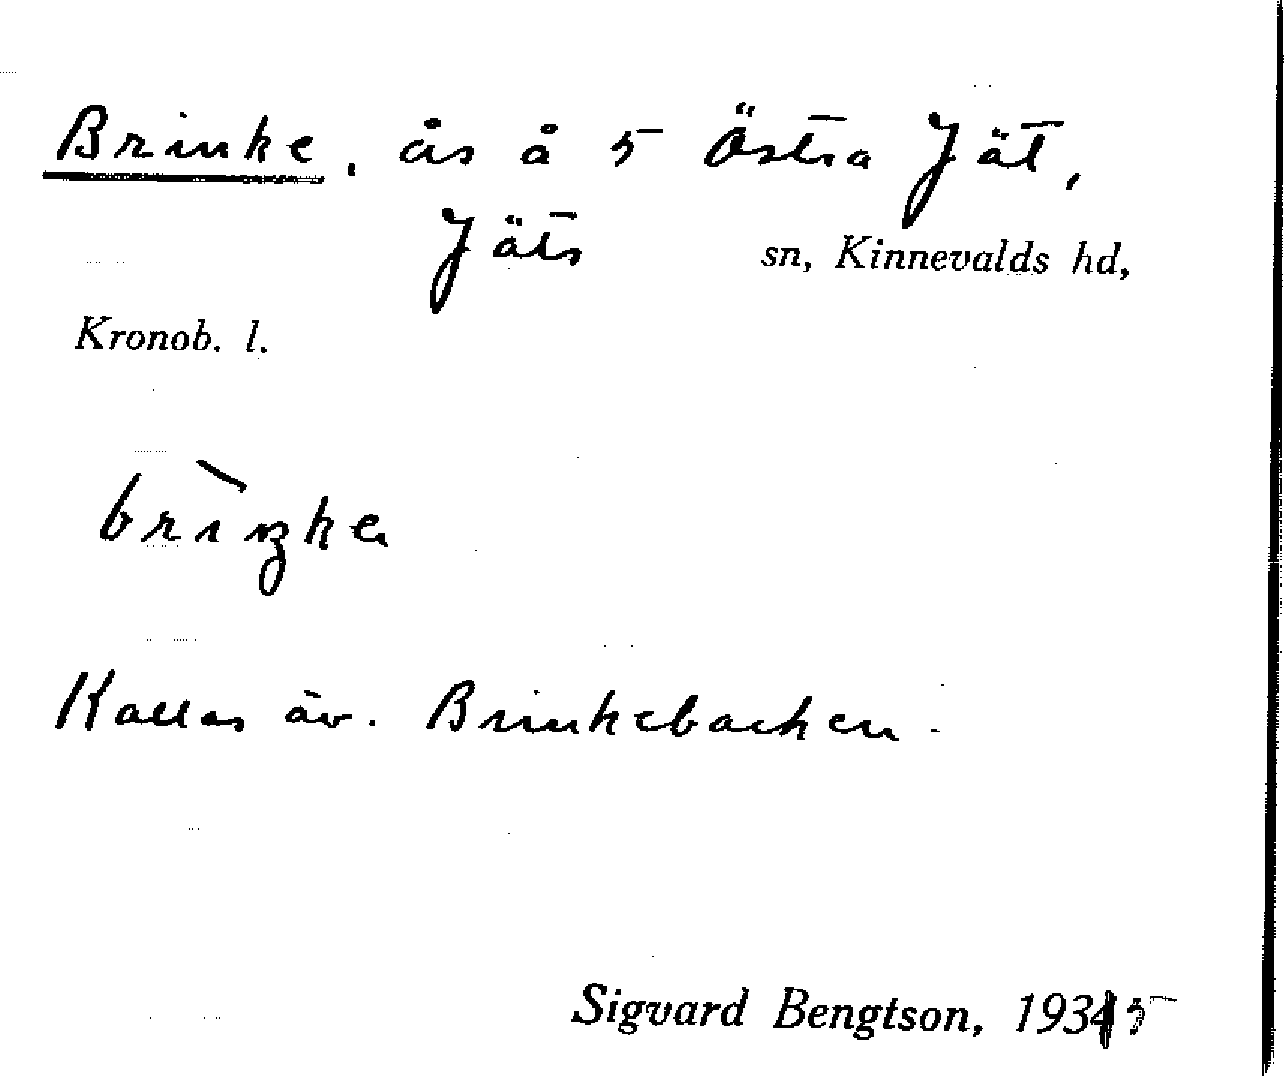 Brinke, ås å 5 Östra Jät,
Jäts sn, Kinnevalds hd,
Kronob. l.
brìŋke
Kallas äv. Brinkebacken.
Sigvard Bengtson, 1935